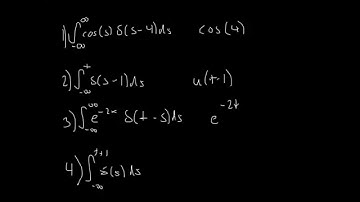 1) ∫_{-∞}^{∞} cos(s) δ(s-4) ds cos(4)
2) ∫_{-∞}^{t} δ(s-1) ds u(t-1)
3) ∫_{-∞}^{∞} e^{-2x} δ(t-s) ds e^{-2t}
4) ∫_{-∞}^{t+1} δ(s) ds